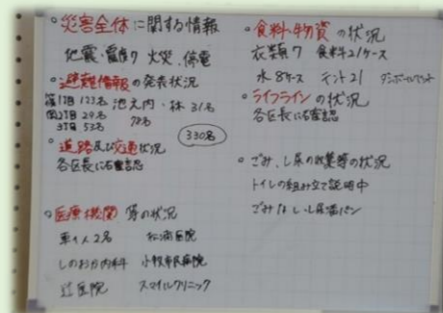 ◦災害全体に関する情報
地震、雷震り 火災、停電
◦避難情報の発表状況
篠1丁目 123名 池之内・林 31名
篠2丁目 29名 98名
3丁目 53名
330名
◦道路及び交通状況
各区長に確認
◦医療機関 等の状況
軽イ人2名 松浦医院
しのおか内科 小牧市民病院
辻医院 スマイルクリニック
◦食料・物資の状況
衣類7 食料21ケース
水8ケース テント21 ダンボールマット
◦ライフラインの状況
各区長に確認
◦ごみ、し尿の収集等の状況
トイレの組み立て説明中
ごみなし、し尿満パン